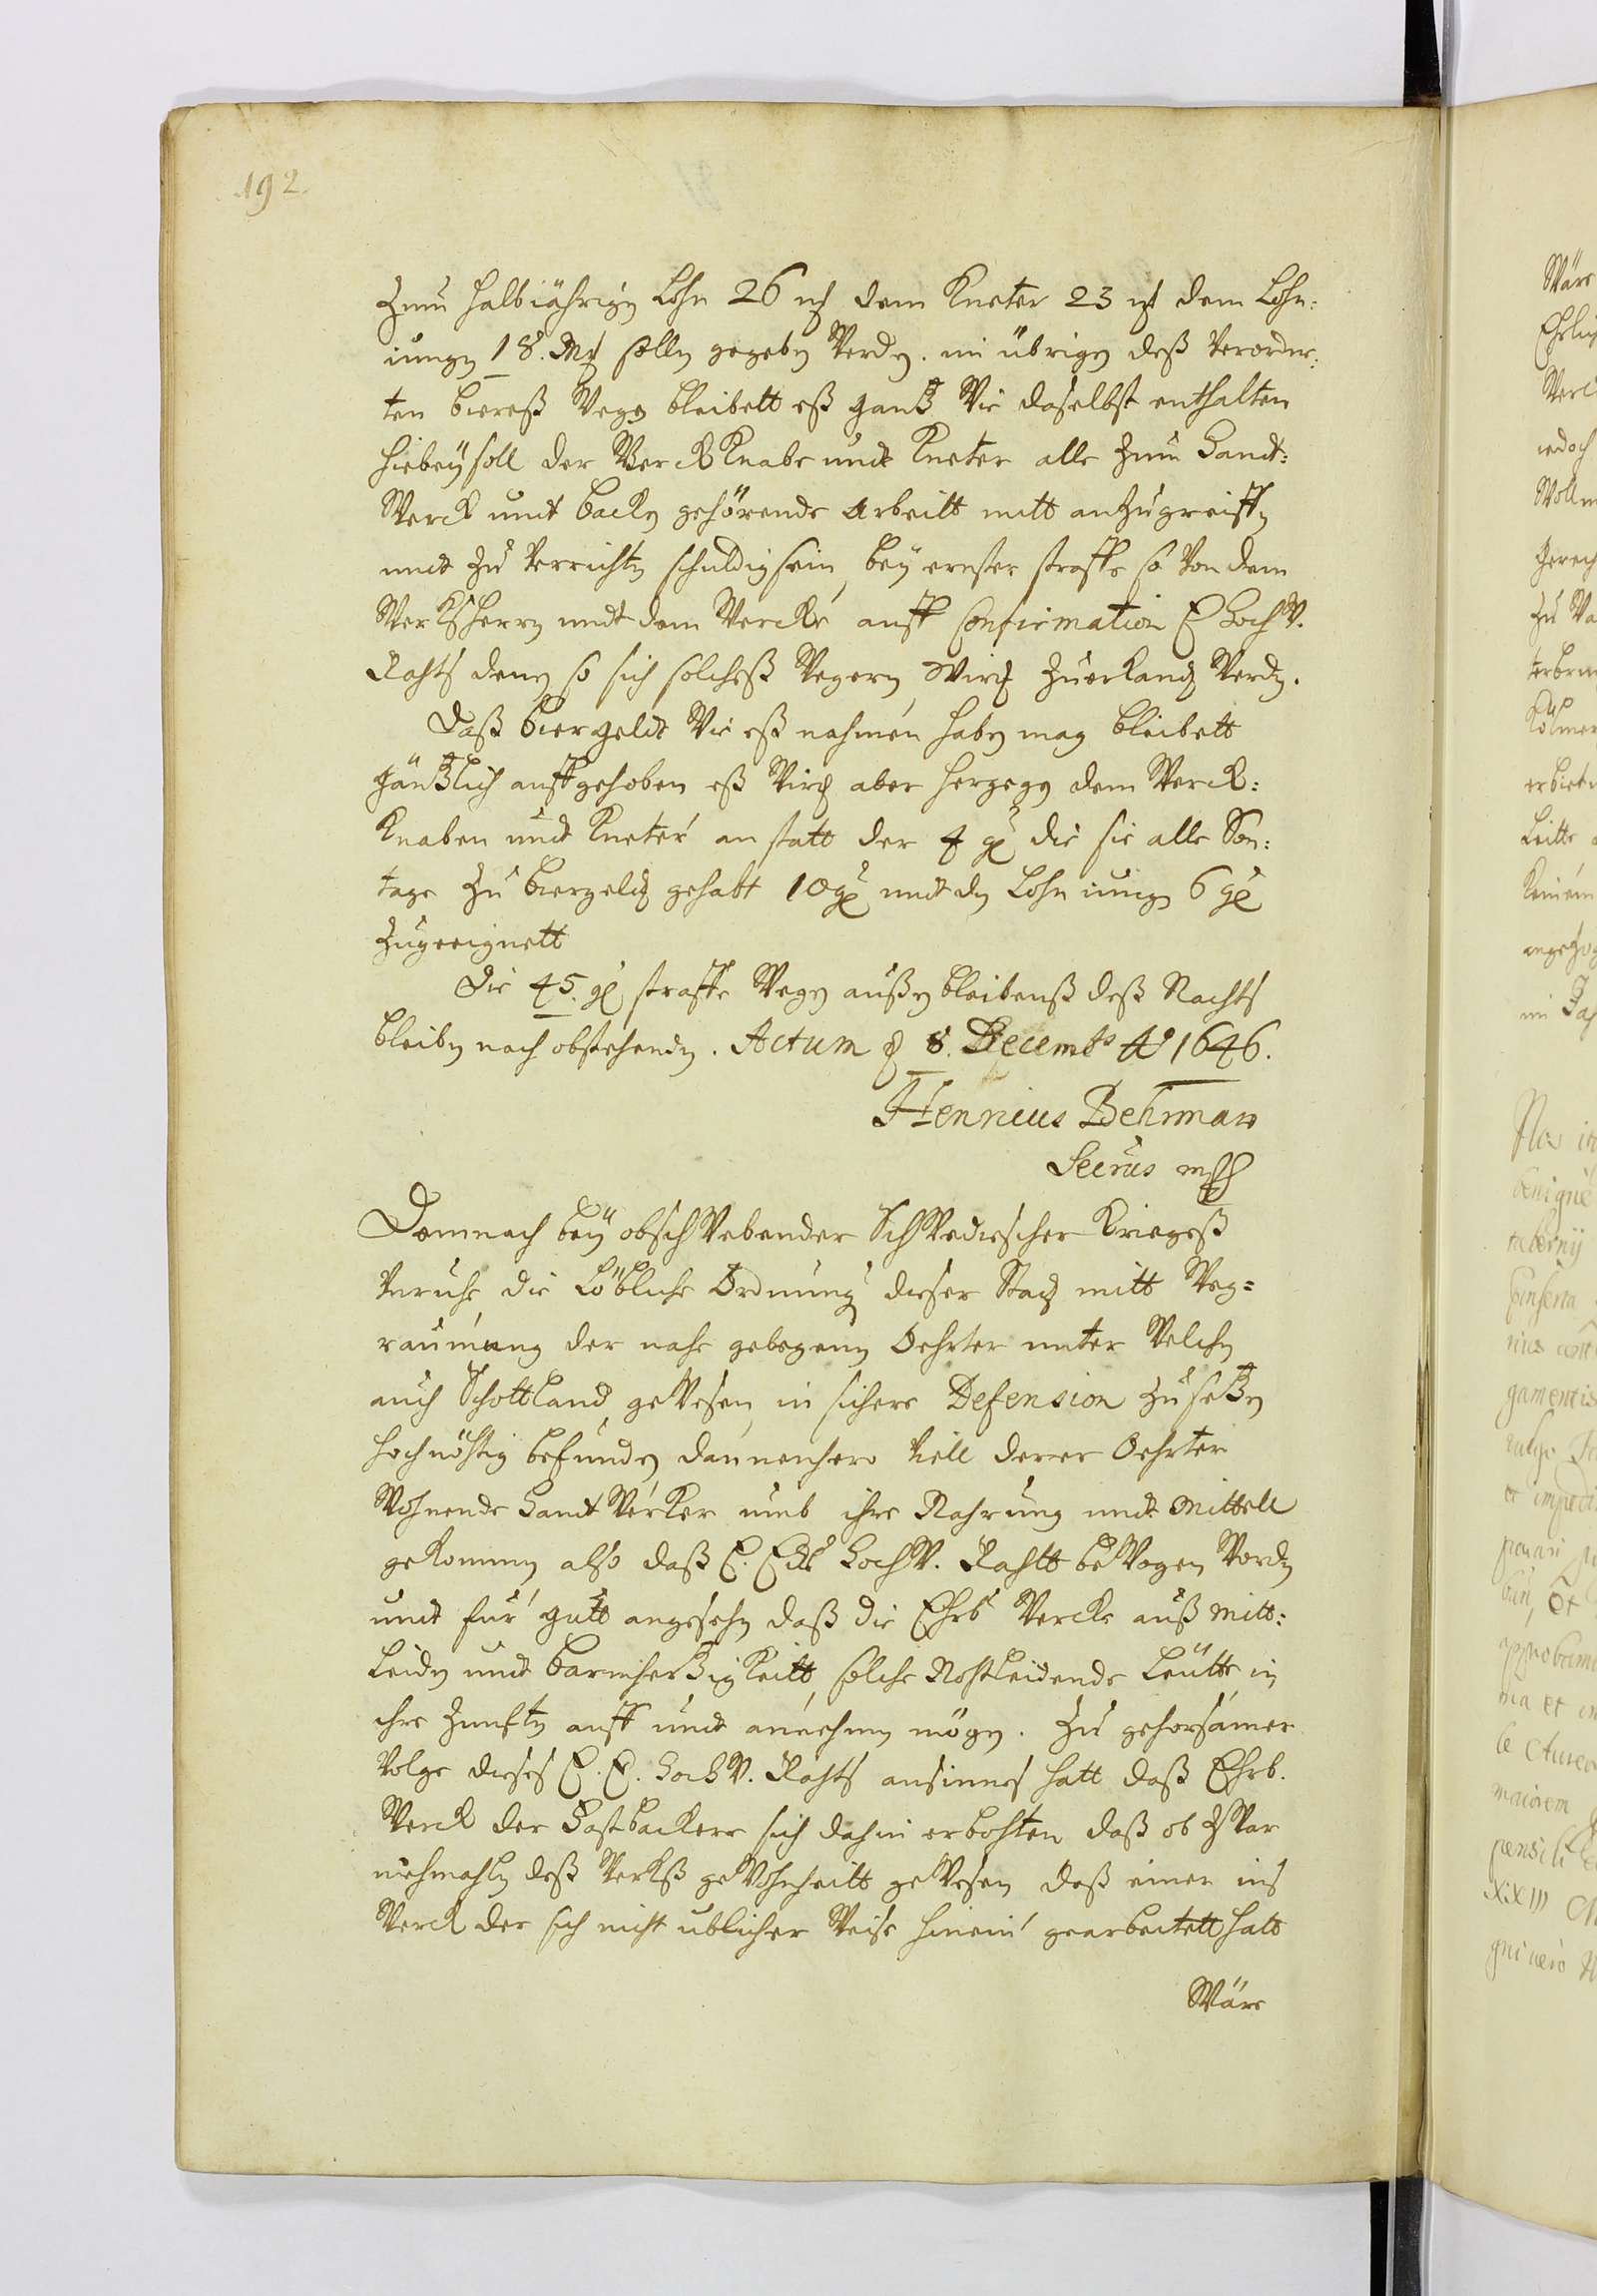 192.
Zum halbiährign Lohn 26 mk dem Kneter 23 mk dem Lohn:
iungn 18. Mk solln gegebn Werdn. im übrign deß Verordne:
ten biereß Wegn bleibett eß gantz Wie daselbst enthalten
hiebeÿ soll der WerckKnabe undt Kneter alle Zum Handt:
Werck undt backn gehörende Arbeitt mitt anZugreiffn
undt Zu Verrichtn schuldig sein, beÿ ernster straffe so Von dem
WerksHerrn undt dem Wercke auff Confirmation E HochW.
Rahts denn so sich solcheß Wegern, Wird Zuerkand Werdn.
Daß biergeldt Wie eß nahmen habn mag bleibett
gäntzlich auffgehoben eß Wird aber hergegn dem Werck:
Knaben undt Kneter an statt der 4 g die sie alle Son:
tage Zu biergeld gehabt 10 g undt dn Lohn iungn 6 g
Zugeeignett
Die 45. g straffe Wegn außn bleibenß deß Nachts
bleibn nach obstehendn. Actum d 8. Decemb Ao 1646.
Henricus Behrman
Secrus mpp
Demnach beÿ obschWebender SchWedischer Kriegeß
Unruhe die Löbliche Ordnung dieser Stad mitt Weg=
raumung der nahe gelegenn Oehrter unter Welchn
auch Schottland geWesen in sichere Defension Zu setzn
hochnöhtig befundn dannenhero Viell derer Oehrter
Wohnende HandtWerker umb ihre Nahrung undt Mittell
gekommn also daß E. Edl HochW. Rahtt beWogen Wordn
undt fur gutt angesehn daß die Ehrb Wercke auß Mitt:
leidn undt barmhertzigkeitt, solche Nohtleidende Leutte in
ihre Zunftn auff undt annehmn mögn. Zu gehorsamer
Volge dieses E. E. HochW. Rahts ansinnes hatt daß Ehrb.
Werck der Fastbacker sich dahin erbohten daß ob ZWar
niehmahln deß Werkß geWohnheitt geWesen daß einer ins
Werck der sich nicht ublicher Weise hinein gearbeitett hatt
Wäre